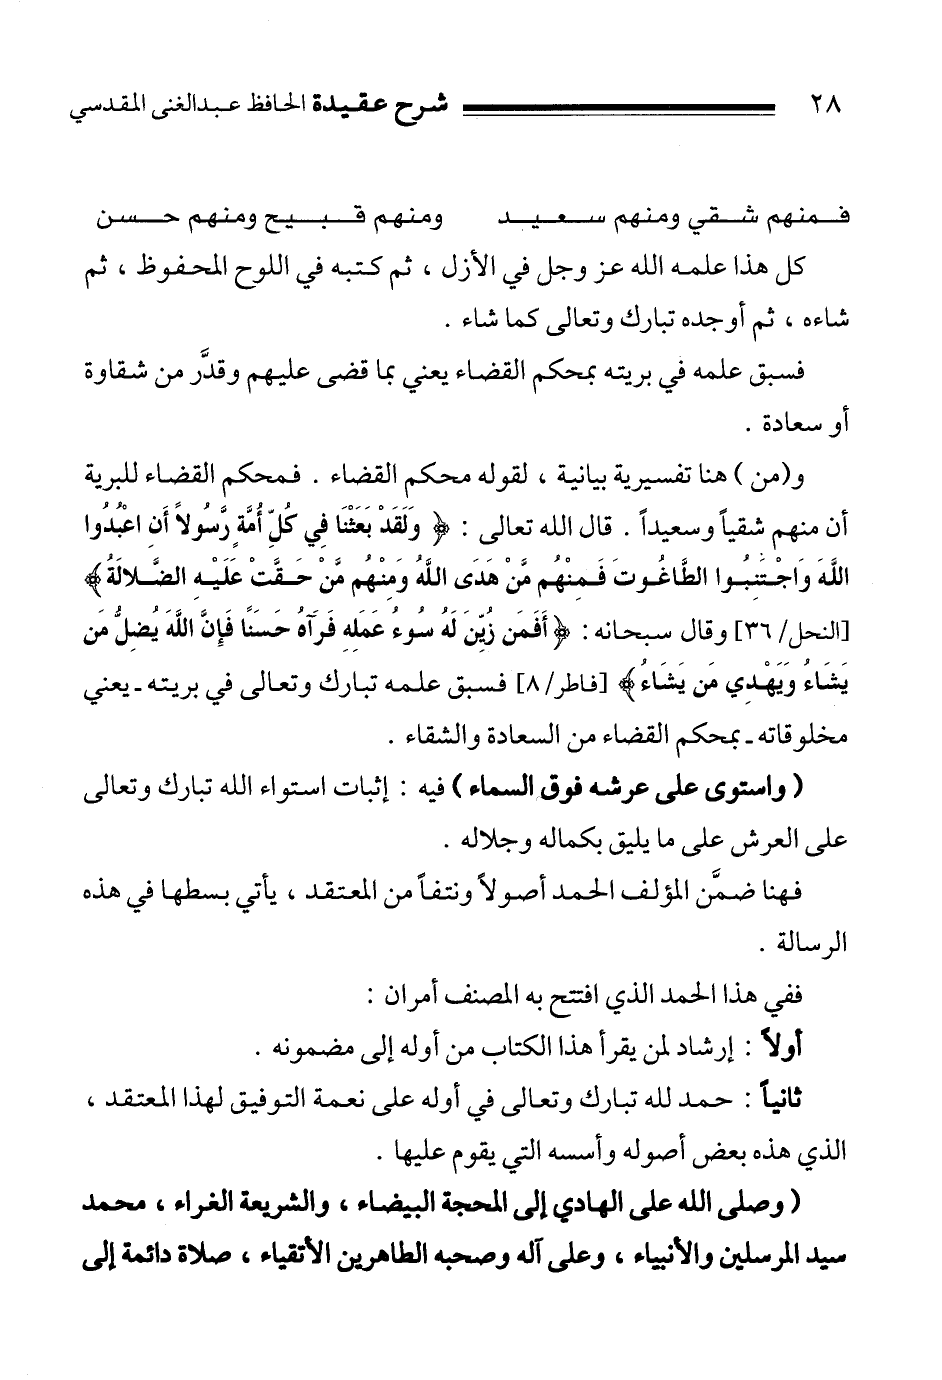 ٢٨ شرح عقيدة الحافظ عبدالغني المقدسي
فمنهم شقي ومنهم سعيد ومنهم قبيح ومنهم حسن
كل هذا علمه الله عز وجل في الأزل ، ثم كتبه في اللوح المحفوظ ، ثم
شاءه ، ثم أوجده تبارك وتعالى كما شاء .
فسبق علمه في بريته بمحكم القضاء يعني بما قضى عليهم وقدَّر من شقاوة
أو سعادة .
و(من ) هنا تفسيرية بيانية ، لقوله محكم القضاء . فمحكم القضاء للبرية
أن منهم شقياً وسعيداً . قال الله تعالى : ﴿ وَلَقَدْ بَعَثْنَا فِي كُلِّ أُمَّةٍ رَّسُولاً أَنِ اعْبُدُوا
اللَّهَ وَاجْتَنِبُوا الطَّاغُوتَ فَمِنْهُم مَّنْ هَدَى اللَّهُ وَمِنْهُم مَّنْ حَقَّتْ عَلَيْهِ الضَّلالَةُ ﴾
[النحل/٣٦] وقال سبحانه : ﴿ أَفَمَن زُيِّنَ لَهُ سُوءُ عَمَلِهِ فَرَآهُ حَسَنًا فَإِنَّ اللَّهَ يُضِلُّ مَن
يَشَاءُ وَيَهْدِي مَن يَشَاءُ ﴾ [فاطر/٨] فسبق علمه تبارك وتعالى في بريته ـ يعني
مخلوقاته ـ بمحكم القضاء من السعادة والشقاء .
( واستوى على عرشه فوق السماء ) فيه : إثبات استواء الله تبارك وتعالى
على العرش على ما يليق بكماله وجلاله .
فهنا ضمَّن المؤلف الحمد أصولاً ونتفاً من المعتقد ، يأتي بسطها في هذه
الرسالة .
ففي هذا الحمد الذي افتتح به المصنف أمران :
أولاً : إرشاد لمن يقرأ هذا الكتاب من أوله إلى مضمونه .
ثانياً : حمد لله تبارك وتعالى في أوله على نعمة التوفيق لهذا المعتقد ،
الذي هذه بعض أصوله وأسسه التي يقوم عليها .
( وصلى الله على الهادي إلى المحجة البيضاء ، والشريعة الغراء ، محمد
سيد المرسلين والأنبياء ، وعلى آله وصحبه الطاهرين الأتقياء ، صلاة دائمة إلى